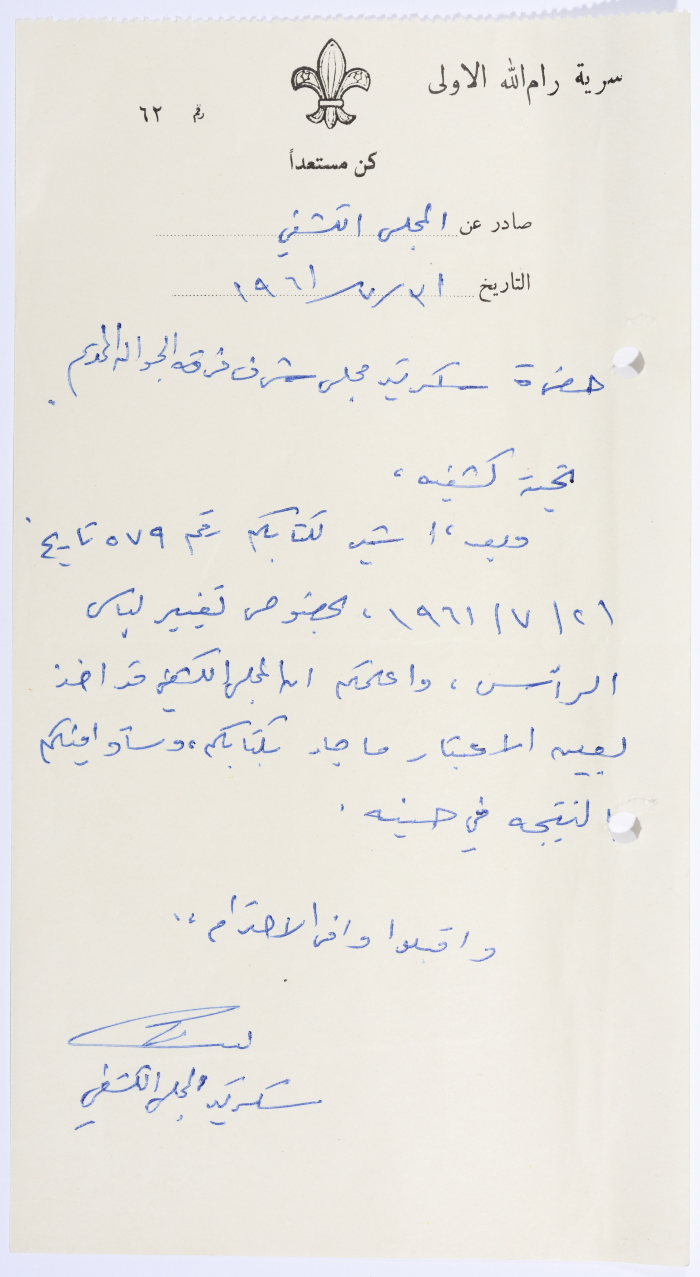 سرية رام الله الاولى
رقم ٦٢
كن مستعداً
صادر عن المجلس الكشفي
التاريخ ٣١/٧/١٩٦١
حضرة سكرتير مجلس شرف فرقة الجوالة المحترم
تحية كشفيه ،
وبعد ، اشير لكتابكم رقم ٥٧٩ تاريخ
٢١/٧/١٩٦١ ، بخصوص تغيير لباس
الرأس ، واعلمكم ان المجلس الكشفي قد اخذ
بعين الاعتبار ما جاء بكتابكم ، وسأوافيكم
بالنتيجه في حينه .
واقبلوا وافر الاحترام ،،
سكرتير المجلس الكشفي